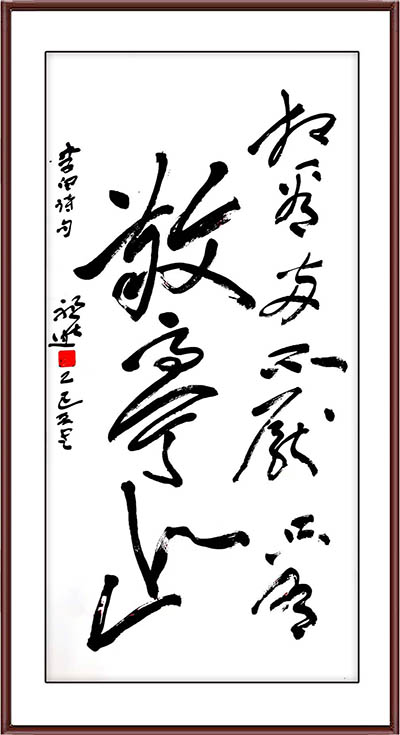 相看两不厭只有
敬亭山
李白诗句
乙巳